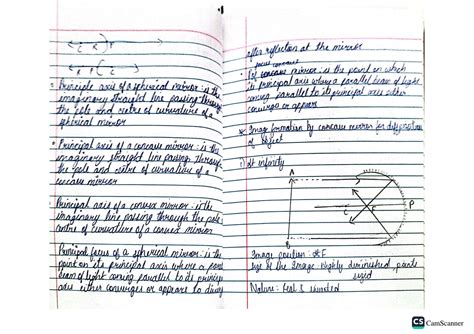 C F P
P
• Principle axis of a spherical mirror: is the
imaginary straight line passing through
the pole and centre of curvature of a
spherical mirror
• Principal axis of a concave mirror: is the
imaginary straight line passing through
the pole and centre of curvature of a
concave mirror
Principal axis of a convex mirror: is the
imaginary line passing through the pole
centre of curvature of a convex mirror
Principal focus of a spherical mirror: is the
point on its principal axis where a
beam of light coming parallel to its principal
axis either converges or appears to
after reflection at the mirror
focus concave
of concave mirror: is the point on which
its principal axis where a parallel beam of light
coming parallel to its principal axis either
converge or appears
Image formation by concave mirror for different
of object
At infinity
A
C F P
B
Image position: at F
Size of the Image highly diminished, point
sized
Nature: Real & inverted
CS CamScanner